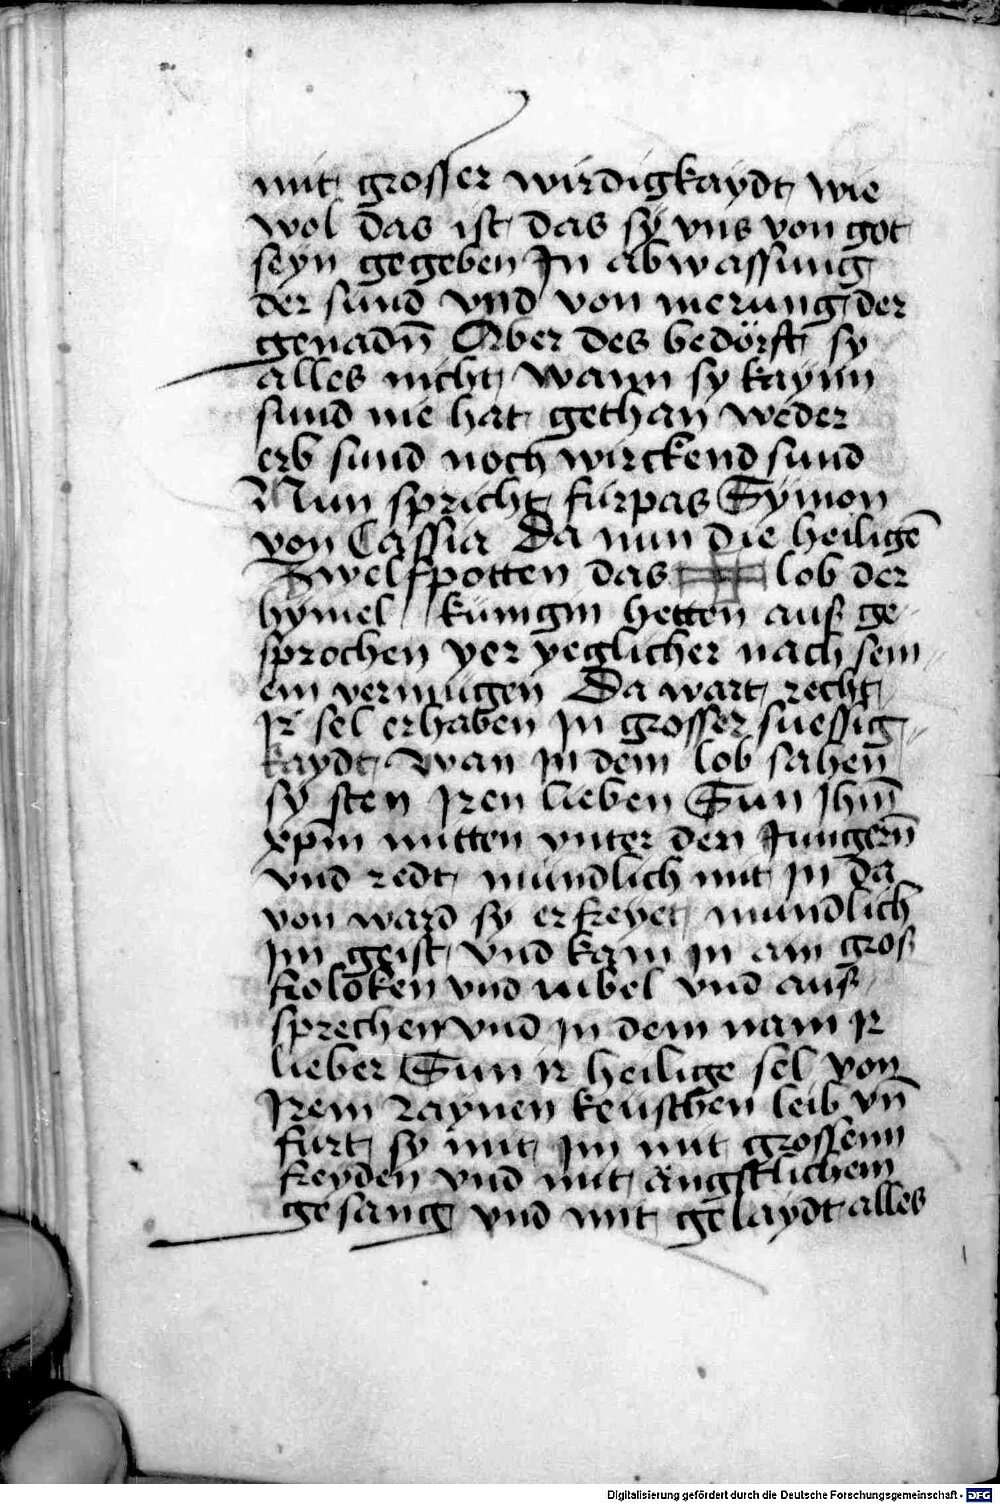 mit grosser wirdigkaydt wie
wol das ist das sÿ vns von got
seyn gegeben Jn abwassung
der sund vnd von merung der
genadn̄ Aber des bedörft sy
alles nicht wann sy kaynn
sund nie hat gethan weder
erb sund noch wirckend sund
Nun spricht furpas Sÿmon
von Cassia Da nun die heiligē
Zwelfpotten das lob der
hymel kunigin hetten auß ge
sprochen yer yeglicher nach sein
em vermugen Da wart recht
jr sel erhaben jn grosser suessig
kaydt wan jn dem lob sahen
sy sten jren lieben Sun jhm̄
xp̄m mitten vnter den Jungern̄
vnd redt mundlich mit jn da
von ward sy erfreyet mundlich
jm geist vnd kam jn ain groß
froloken vnd jubel vnd auß
sprechen vnd jn dem nam jr
lieber Sun ir heilige sel von
jrem raynen keuschen leib vn̄
furt sy mit jm mit grossenn
freyden vnd mit ängstlichem
gesang vnd mit gelaydt alles
Digitalisierung gefördert durch die Deutsche Forschungsgemeinschaft - DFG